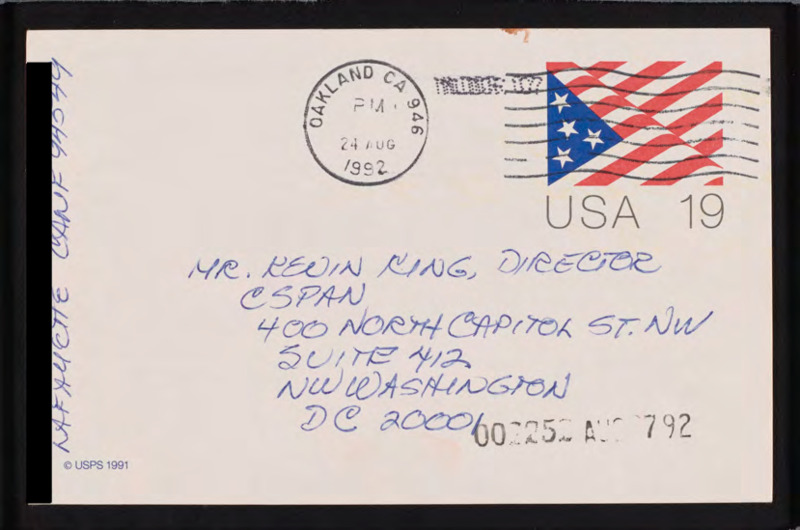 OAKLAND CA 946
PM
24 AUG
1992
USA 19
MR. KEVIN KING, DIRECTOR
CSPAN
400 NORTH CAPITOL ST. NW
SUITE 412
NW WASHINGTON
DC 20001
792
LAFAYETTE CANF 94549
© USPS 1991